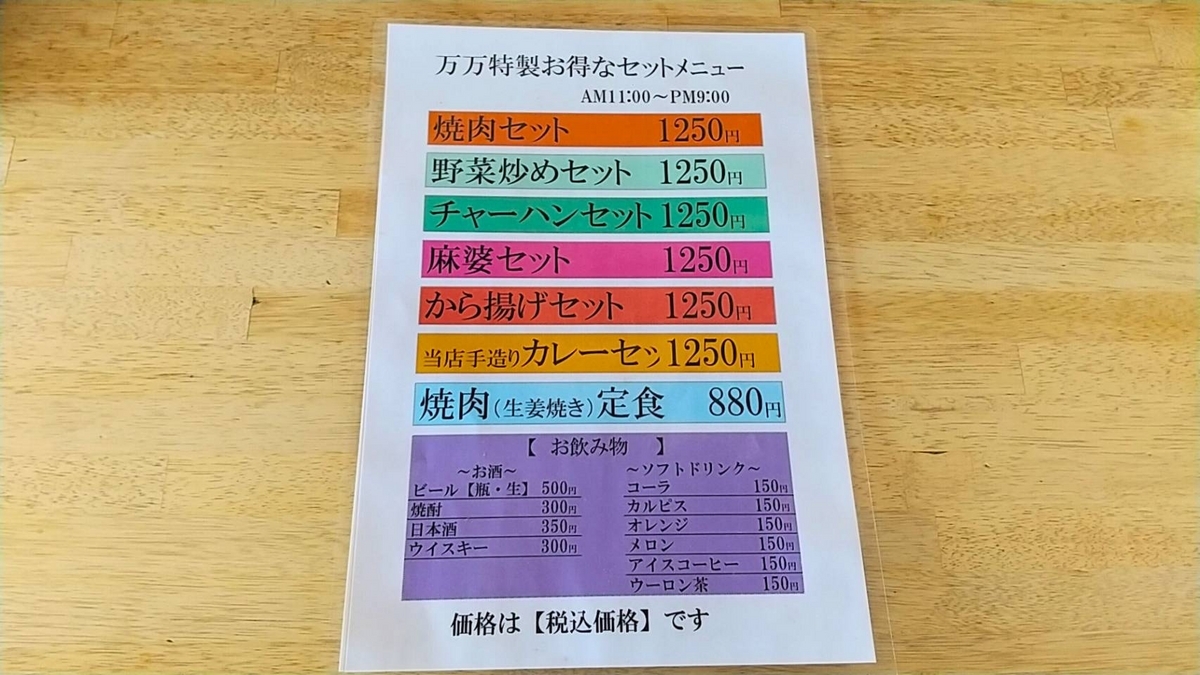 万万特製お得なセットメニュー
AM11:00～PM9:00
焼肉セット 1250円
野菜炒めセット 1250円
チャーハンセット 1250円
麻婆セット 1250円
から揚げセット 1250円
当店手造りカレーセッ 1250円
焼肉(生姜焼き)定食 880円
【 お飲み物 】
～お酒～
ビール【瓶・生】 500円
焼酎 300円
日本酒 350円
ウイスキー 300円
～ソフトドリンク～
コーラ 150円
カルピス 150円
オレンジ 150円
メロン 150円
アイスコーヒー 150円
ウーロン茶 150円
価格は【税込価格】です